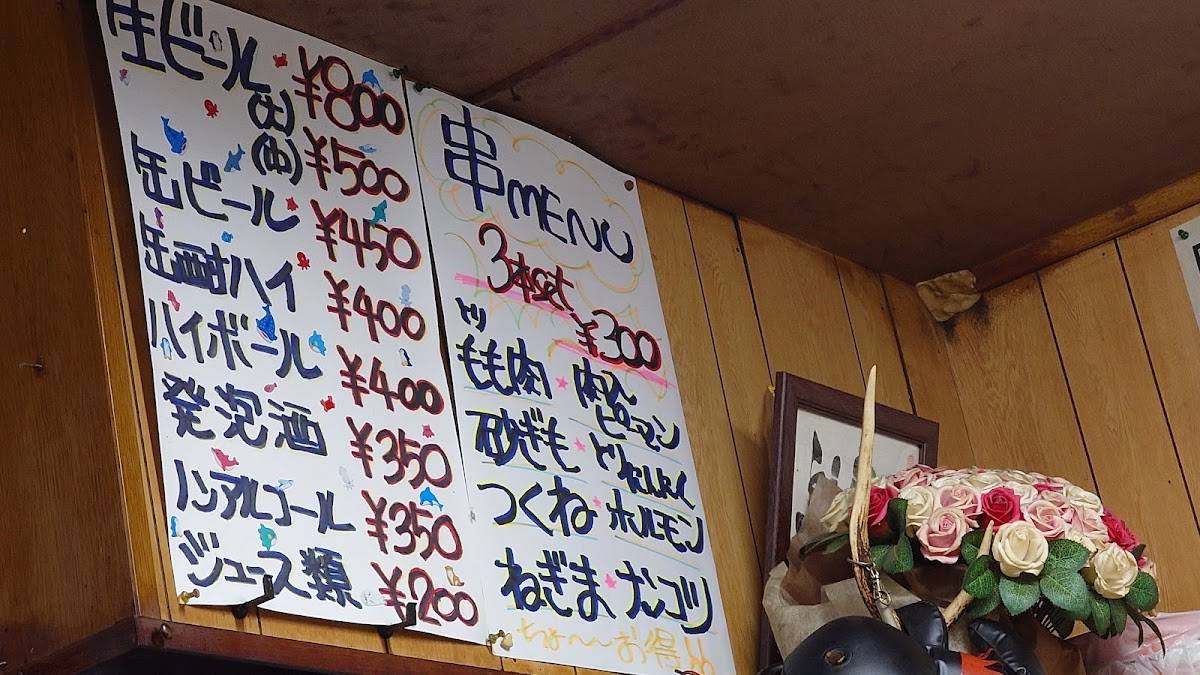 生ビール(大) ¥800
(中) ¥500
缶ビール ¥450
缶酎ハイ ¥400
ハイボール ¥400
発泡酒 ¥350
ノンアルコール ¥350
ジュース類 ¥200
串MENU
3本set
¥300
とりもも肉・肉入ピーマン
砂ぎも・とりにんにく
つくね・ホルモン
ねぎま・ナンコツ
ちょ〜〜お得!!